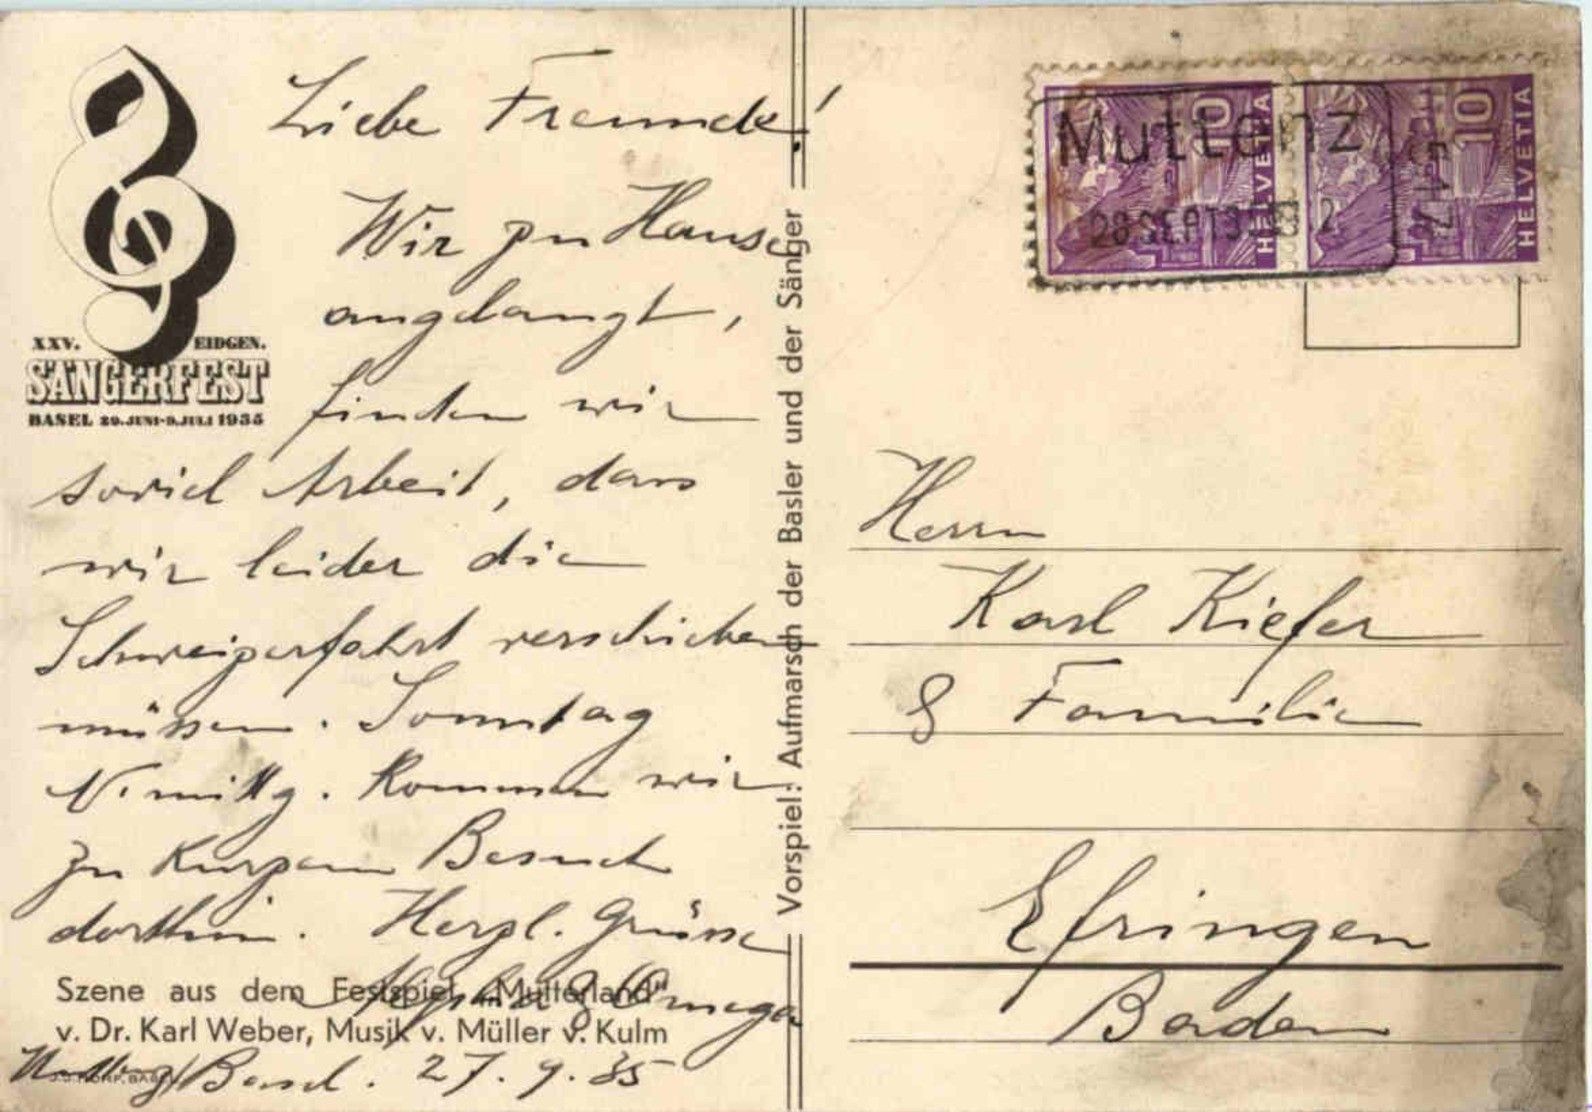 XXV. EIDGEN.
SÄNGERFEST
BASEL 29. JUNI-9. JULI 1935
Liebe Freunde!
Wir zu Hause
angelangt,
finden wir
soviel Arbeit, dass
wir leider die
Schweizerfahrt verschieben
müssen. Sonntag
N. mittg. kommen wir
zu kurzem Besuch
dorthin. Herzl. Grüsse
Alpha & Omega
Szene aus dem Festspiel „Mutterland"
v. Dr. Karl Weber, Musik v. Müller v. Kulm
Muttenz/Basel. 27. 9. 35
Vorspiel: Aufmarsch der Basler und der Sänger
10 HELVETIA
10 HELVETIA
Muttenz
28 SEPT 35
Herrn
Karl Kiefer
& Familie
Efringen
Baden